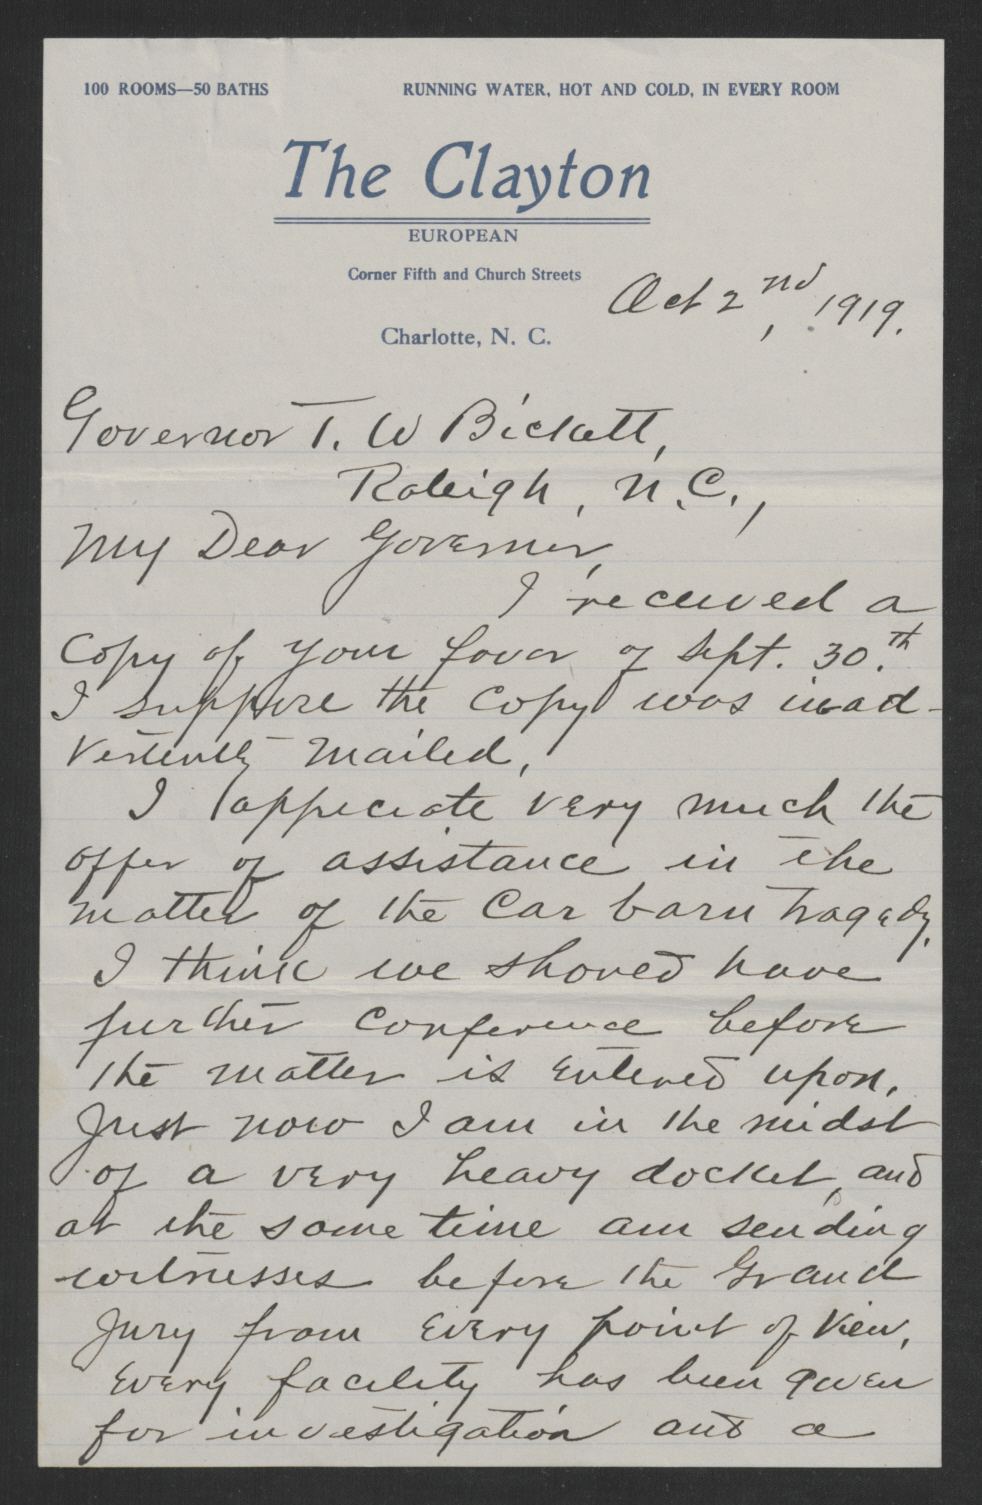 100 ROOMS—50 BATHS
RUNNING WATER, HOT AND COLD, IN EVERY ROOM
The Clayton
EUROPEAN
Corner Fifth and Church Streets
Charlotte, N. C.
Oct 2nd, 1919.
Governor T. W Bickett,
Raleigh, N.C.,
My Dear Governor,
I received a
Copy of your favor of Sept. 30.th
I suppose the Copy was inad-
vertently mailed.
I appreciate very much the
offer of assistance in the
matter of the Car barn tragedy.
I think we should have
further Conference before
the matter is entered upon.
Just now I am in the midst
of a very heavy docket, and
at the same time am sending
witnesses before the Grand
Jury from every point of View.
Every facility has been given
for investigation and a